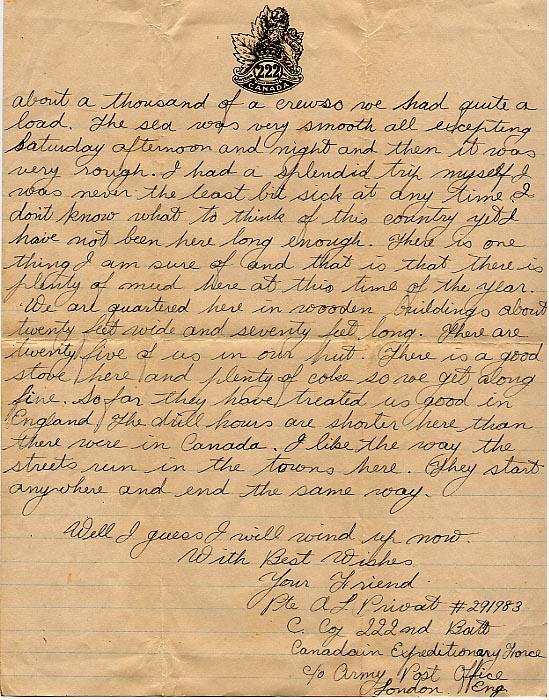 222
CANADA
about a thousand of a crew so we had quite a
load. The sea was very smooth all excepting
Saturday afternoon and night and then it was
very rough. I had a splendid trip myself I
was never the least bit sick at any time. I
don't know what to think of this country yet I
have not been here long enough. There is one
thing I am sure of and that is that there is
plenty of mud here at this time of the year.
We are quartered here in wooden buildings about
twenty feet wide and seventy feet long. There are
twenty five of us in our hut. There is a good
stove here and plenty of coke so we get along
fine. So far they have treated us good in
England. The drill hours are shorter here than
there were in Canada. I like the way the
streets run in the towns here. They start
anywhere and end the same way.
Well I guess I will wind up now.
With Best Wishes
Your Friend
Pte A L Privat #291983
C. Coy 222nd Batt
Canadain Expeditionary Force
c/o Army Post Office
London, Eng